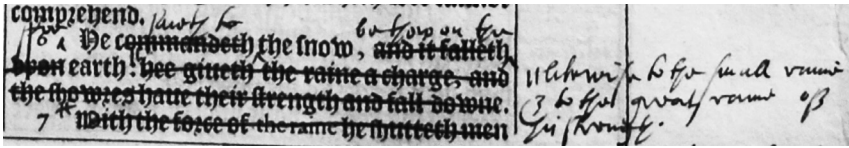 comprehend.
saith to be thou on the
6 He commandeth the snow, and it falleth
vpon earth: hee giueth the raine a charge, and
the showres haue their strength and fall downe.
7 With the force of the raine he shutteth men
likewise to the small raine
& to the great raine of
his strength.